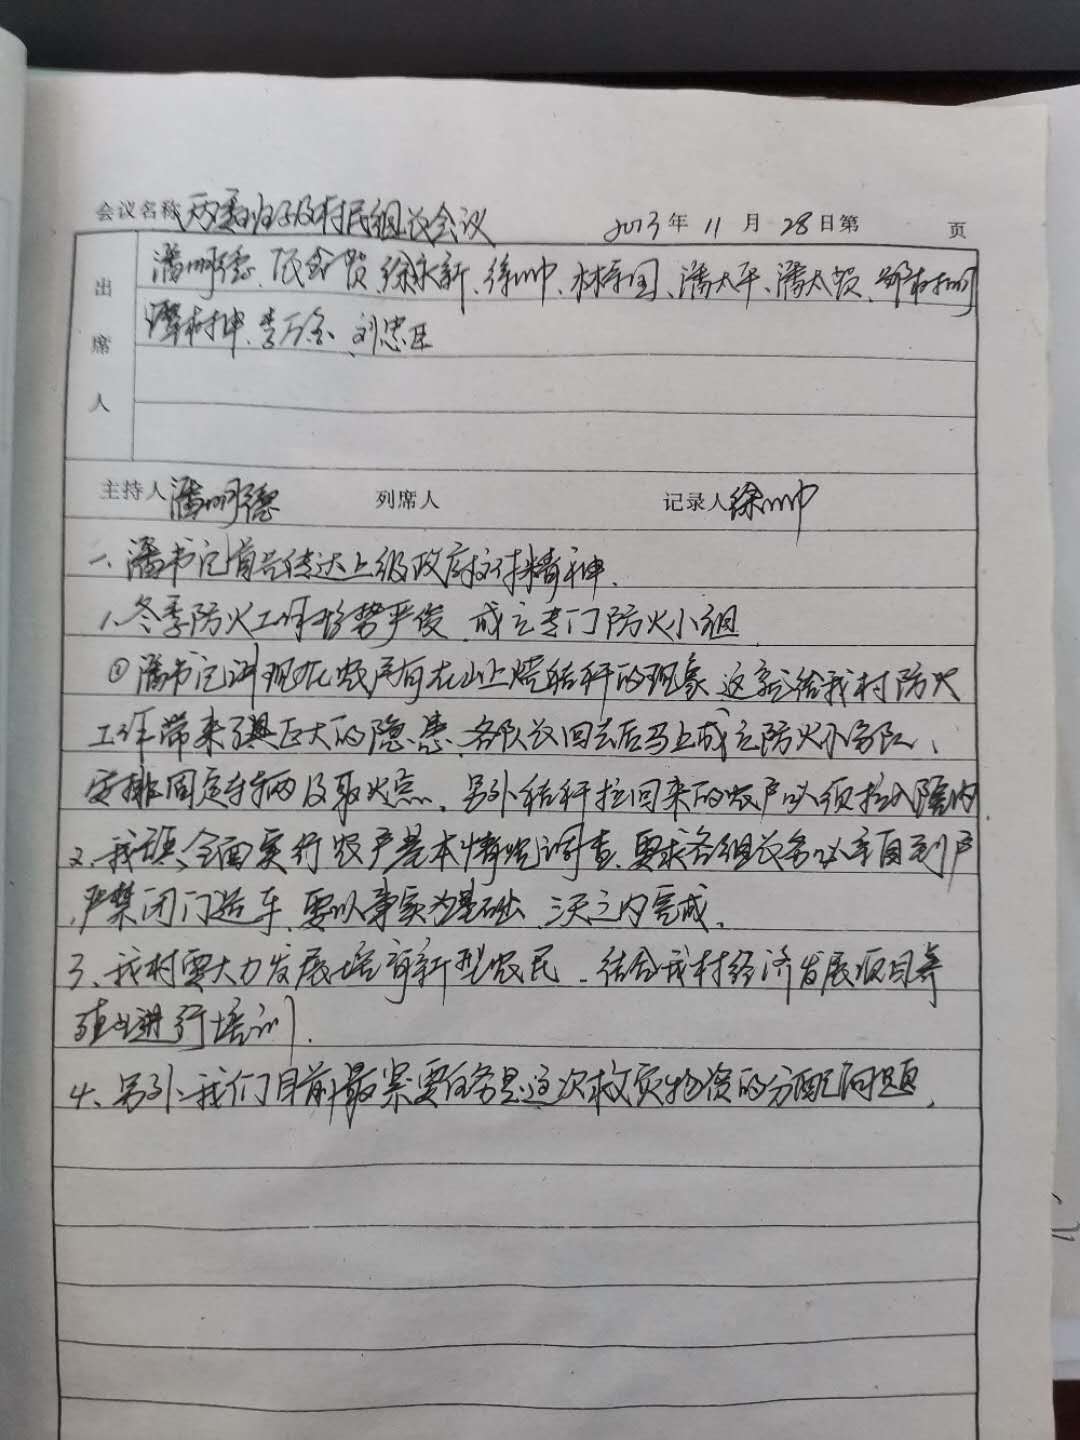 会议名称 两委班子及村民组长会议 2013年 11月 28日第 页
出席人 潘明德、 徐永新、徐帅、林 国、潘太平、潘太贺、
村坤、李万全、刘忠臣
主持人 潘明德 列席人 记录人 徐帅
一、潘书记首先传达上级政府文件精神.
1、冬季防火工作形势严俊、成立专门防火小组
①潘书记讲现在农户有在山上烧秸秆的现象、这就给我村防火
工作带来了 巨大的隐患、各队长回去后马上成立防火小分队、
安排固定车辆及取火点、另外秸秆拉回来的农户必须拉入院内
2、我镇全面实行农户基本情况调查、要求各组长务必亲自到户
、严禁闭门造车、要以事实为基础、三天之内完成、
3、我村要大力发展培育新型农民、结合我村经济发展项目养
殖业进行培训.
4、另外、我们目前最紧要任务是这次救灾物资的分配问题、